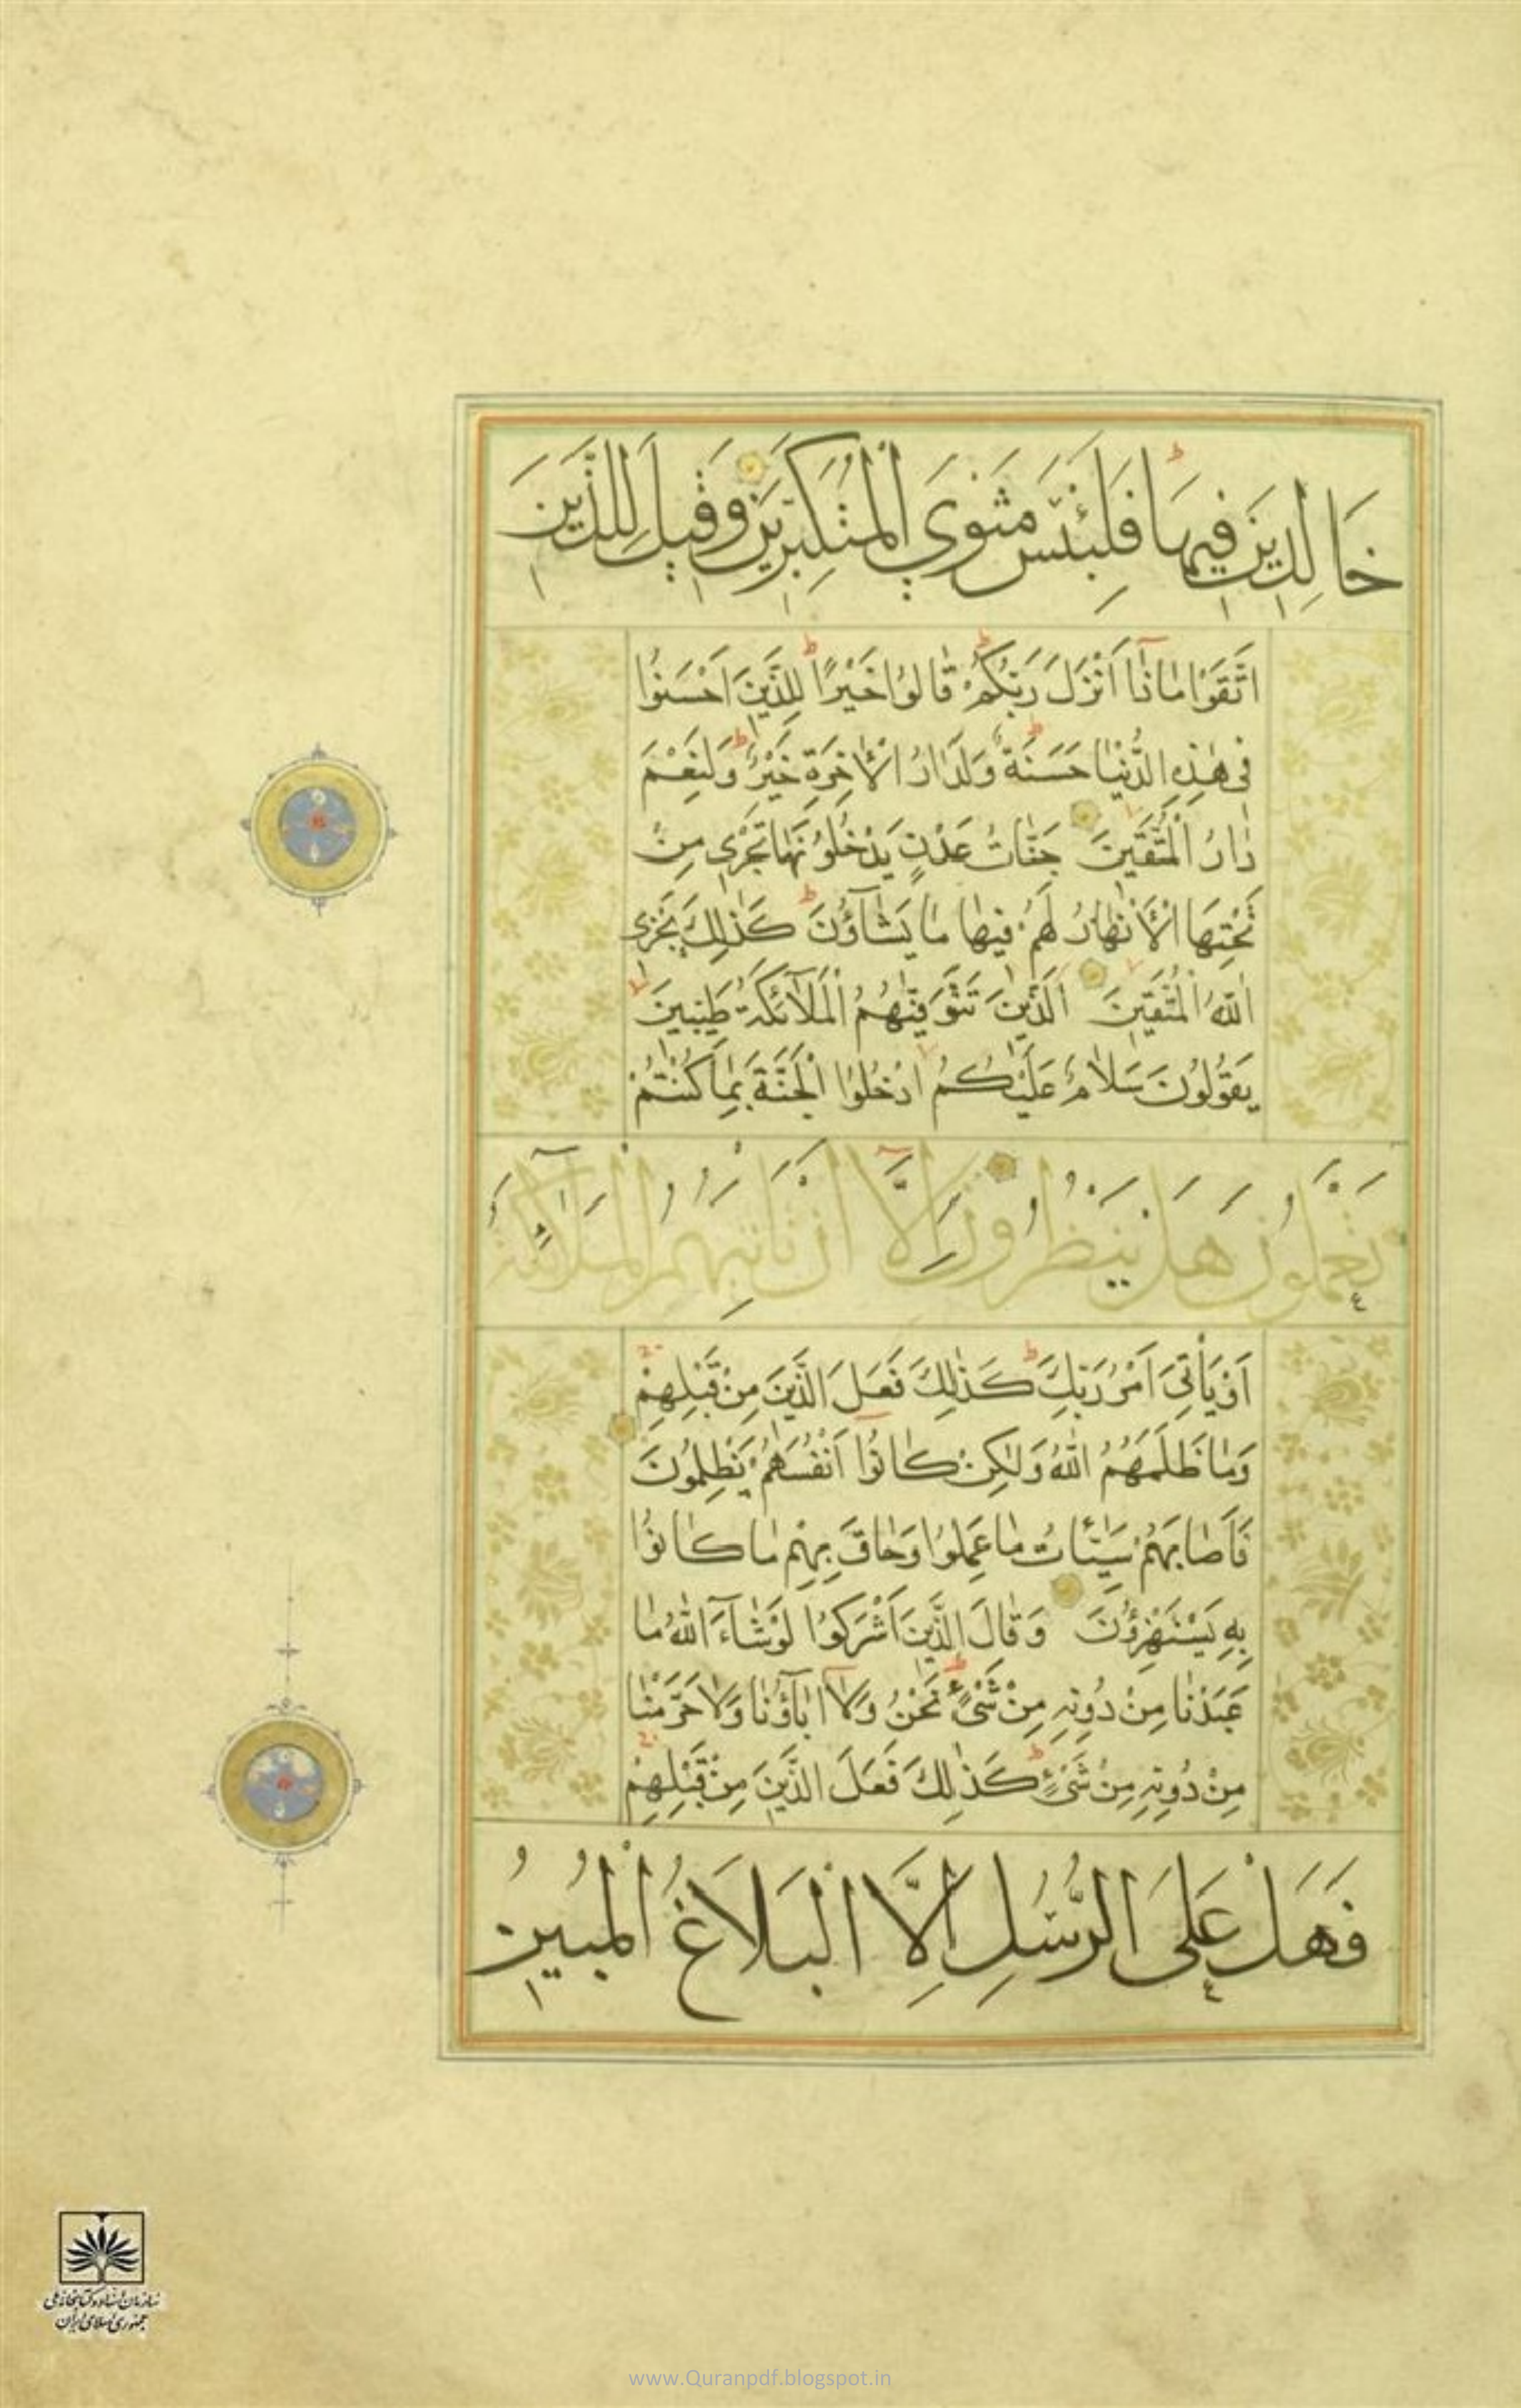 خَالِدِينَ فِيهَا فَلَبِئْسَ مَثْوَى الْمُتَكَبِّرِينَ وَقِيلَ لِلَّذِينَ
اتَّقَوْا مَاذَا أَنْزَلَ رَبُّكُمْ قَالُوا خَيْرًا لِلَّذِينَ أَحْسَنُوا
فِي هٰذِهِ الدُّنْيَا حَسَنَةٌ وَلَدَارُ الْأَخِرَةِ خَيْرٌ وَلَنِعْمَ
دَارُ الْمُتَّقِينَ جَنَّاتُ عَدْنٍ يَدْخُلُونَهَا تَجْرِي مِنْ
تَحْتِهَا الْأَنْهَارُ لَهُمْ فِيهَا مَا يَشَاؤُنَ كَذٰلِكَ يَجْزِي
اللّٰهُ الْمُتَّقِينَ الَّذِينَ تَتَوَفّٰيهُمُ الْمَلَائِكَةُ طَيِّبِينَ
يَقُولُونَ سَلَامٌ عَلَيْكُمُ ادْخُلُوا الْجَنَّةَ بِمَا كُنْتُمْ
تَعْمَلُونَ هَلْ يَنْظُرُونَ إِلَّا أَنْ تَأْتِيَهُمُ الْمَلَائِكَةُ
أَوْ يَأْتِيَ أَمْرُ رَبِّكَ كَذٰلِكَ فَعَلَ الَّذِينَ مِنْ قَبْلِهِمْ
وَمَا ظَلَمَهُمُ اللّٰهُ وَلٰكِنْ كَانُوا أَنْفُسَهُمْ يَظْلِمُونَ
فَأَصَابَهُمْ سَيِّئَاتُ مَا عَمِلُوا وَحَاقَ بِهِمْ مَا كَانُوا
بِهِ يَسْتَهْزِؤُنَ وَقَالَ الَّذِينَ أَشْرَكُوا لَوْ شَاءَ اللّٰهُ مَا
عَبَدْنَا مِنْ دُونِهِ مِنْ شَيْءٍ نَحْنُ وَلَا اٰبَاؤُنَا وَلَا حَرَّمْنَا
مِنْ دُونِهِ مِنْ شَيْءٍ كَذٰلِكَ فَعَلَ الَّذِينَ مِنْ قَبْلِهِمْ
فَهَلْ عَلَى الرُّسُلِ إِلَّا الْبَلَاغُ الْمُبِينُ
سازمان اسناد و کتابخانه ملی
جمهوری اسلامی ایران
www.Quranpdf.blogspot.in